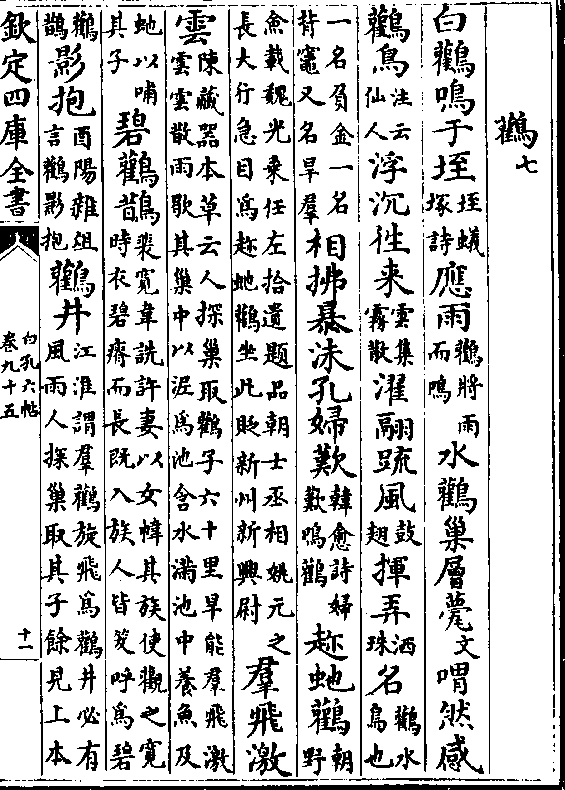 鸛七
白鸛鳴于垤垤蟻塚詩應雨鸛將雨而鳴水鸛巢層甍文喟然感
鸛鳥注云仙人浮沉徃来雲集霧散濯翮䟽風鼓翅揮弄洒珠名鸛水鳥也
一名負金一名背竈又名旱羣相拂暴洙孔婦歎韓愈詩婦歎鳴鸛趂虵鸛朝野
僉載魏光乗任左拾遺題品朝士丞相姚元之長大行急目爲趂虵鸛坐此貶新州新興尉羣飛激
雲陳藏器本草云人探巢取鸛子六十里旱能羣飛激雲雲散雨歇其巢中以泥爲池含水滿池中養魚及
虵以哺其子碧鸛鵲裴寛韋詵許妻以女幃其族使觀之寛時衣碧瘠而長既入族人皆笑呼爲碧
鸛鵲影抱酉陽雜俎言鸛影抱鸛井江淮謂羣鸛旋飛爲鸛井必有風雨人探巢取其子餘見上本
欽定四庫全書
白孔六帖
卷九十五
十一